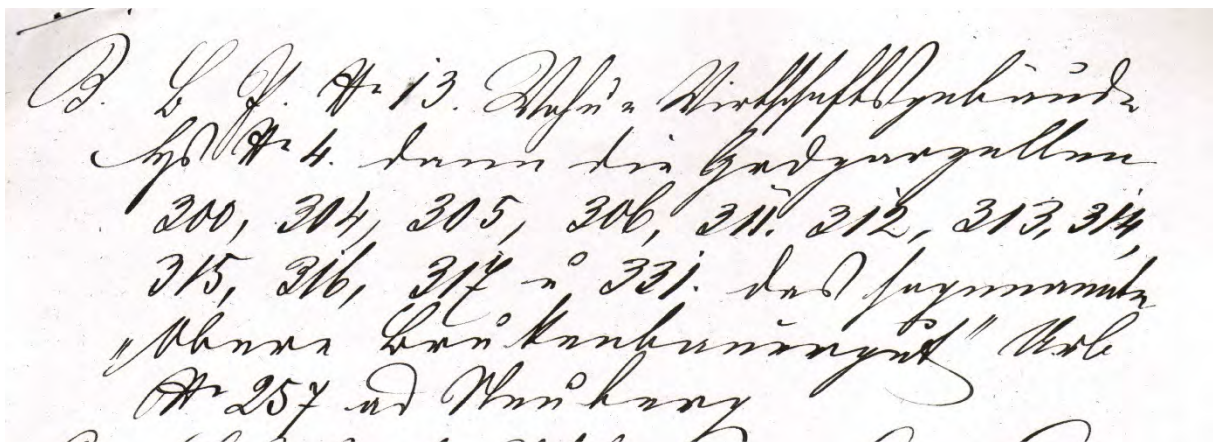 B. B. P. Nr 13. Wohn u Wirthschaftsgebäude
Hs Nr 4. dann die Grdparzellen
300, 304, 305, 306, 311. 312, 313, 314,
315, 316, 317 u 331. das sogenannte
„Obere Brukenbauerngut“ Urb
Nr 257 ad Neuberg